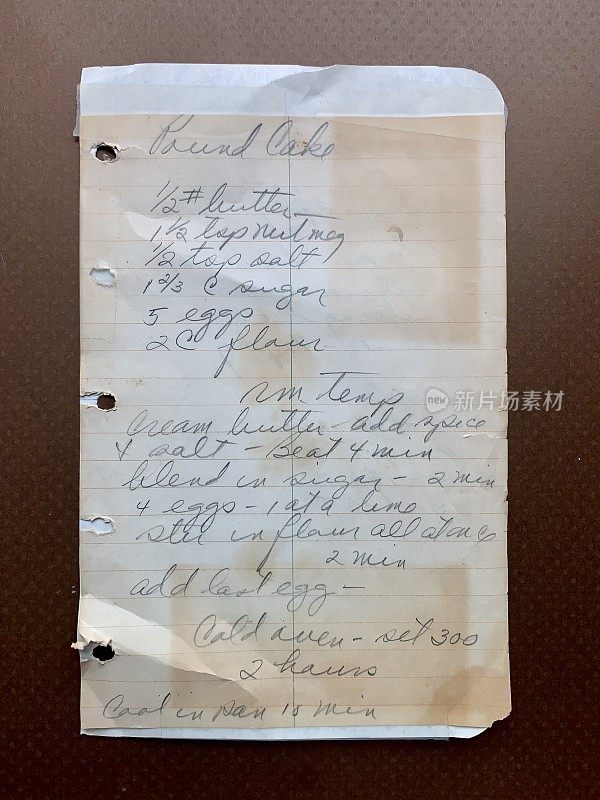 Pound Cake
1/2 # butter
1 1/2 tsp nutmeg
1/2 tsp salt
1 2/3 C sugar
5 eggs
2 C flour
rm temp
Cream butter add spice
+ salt - Beat 4 min
blend in sugar - 2 min
4 eggs - 1 at a time
stir in flour all at once
2 min
add last egg -
Cold oven - set 300
2 hours
Cool in pan 10 min
new
iStock
Credit: NNehring